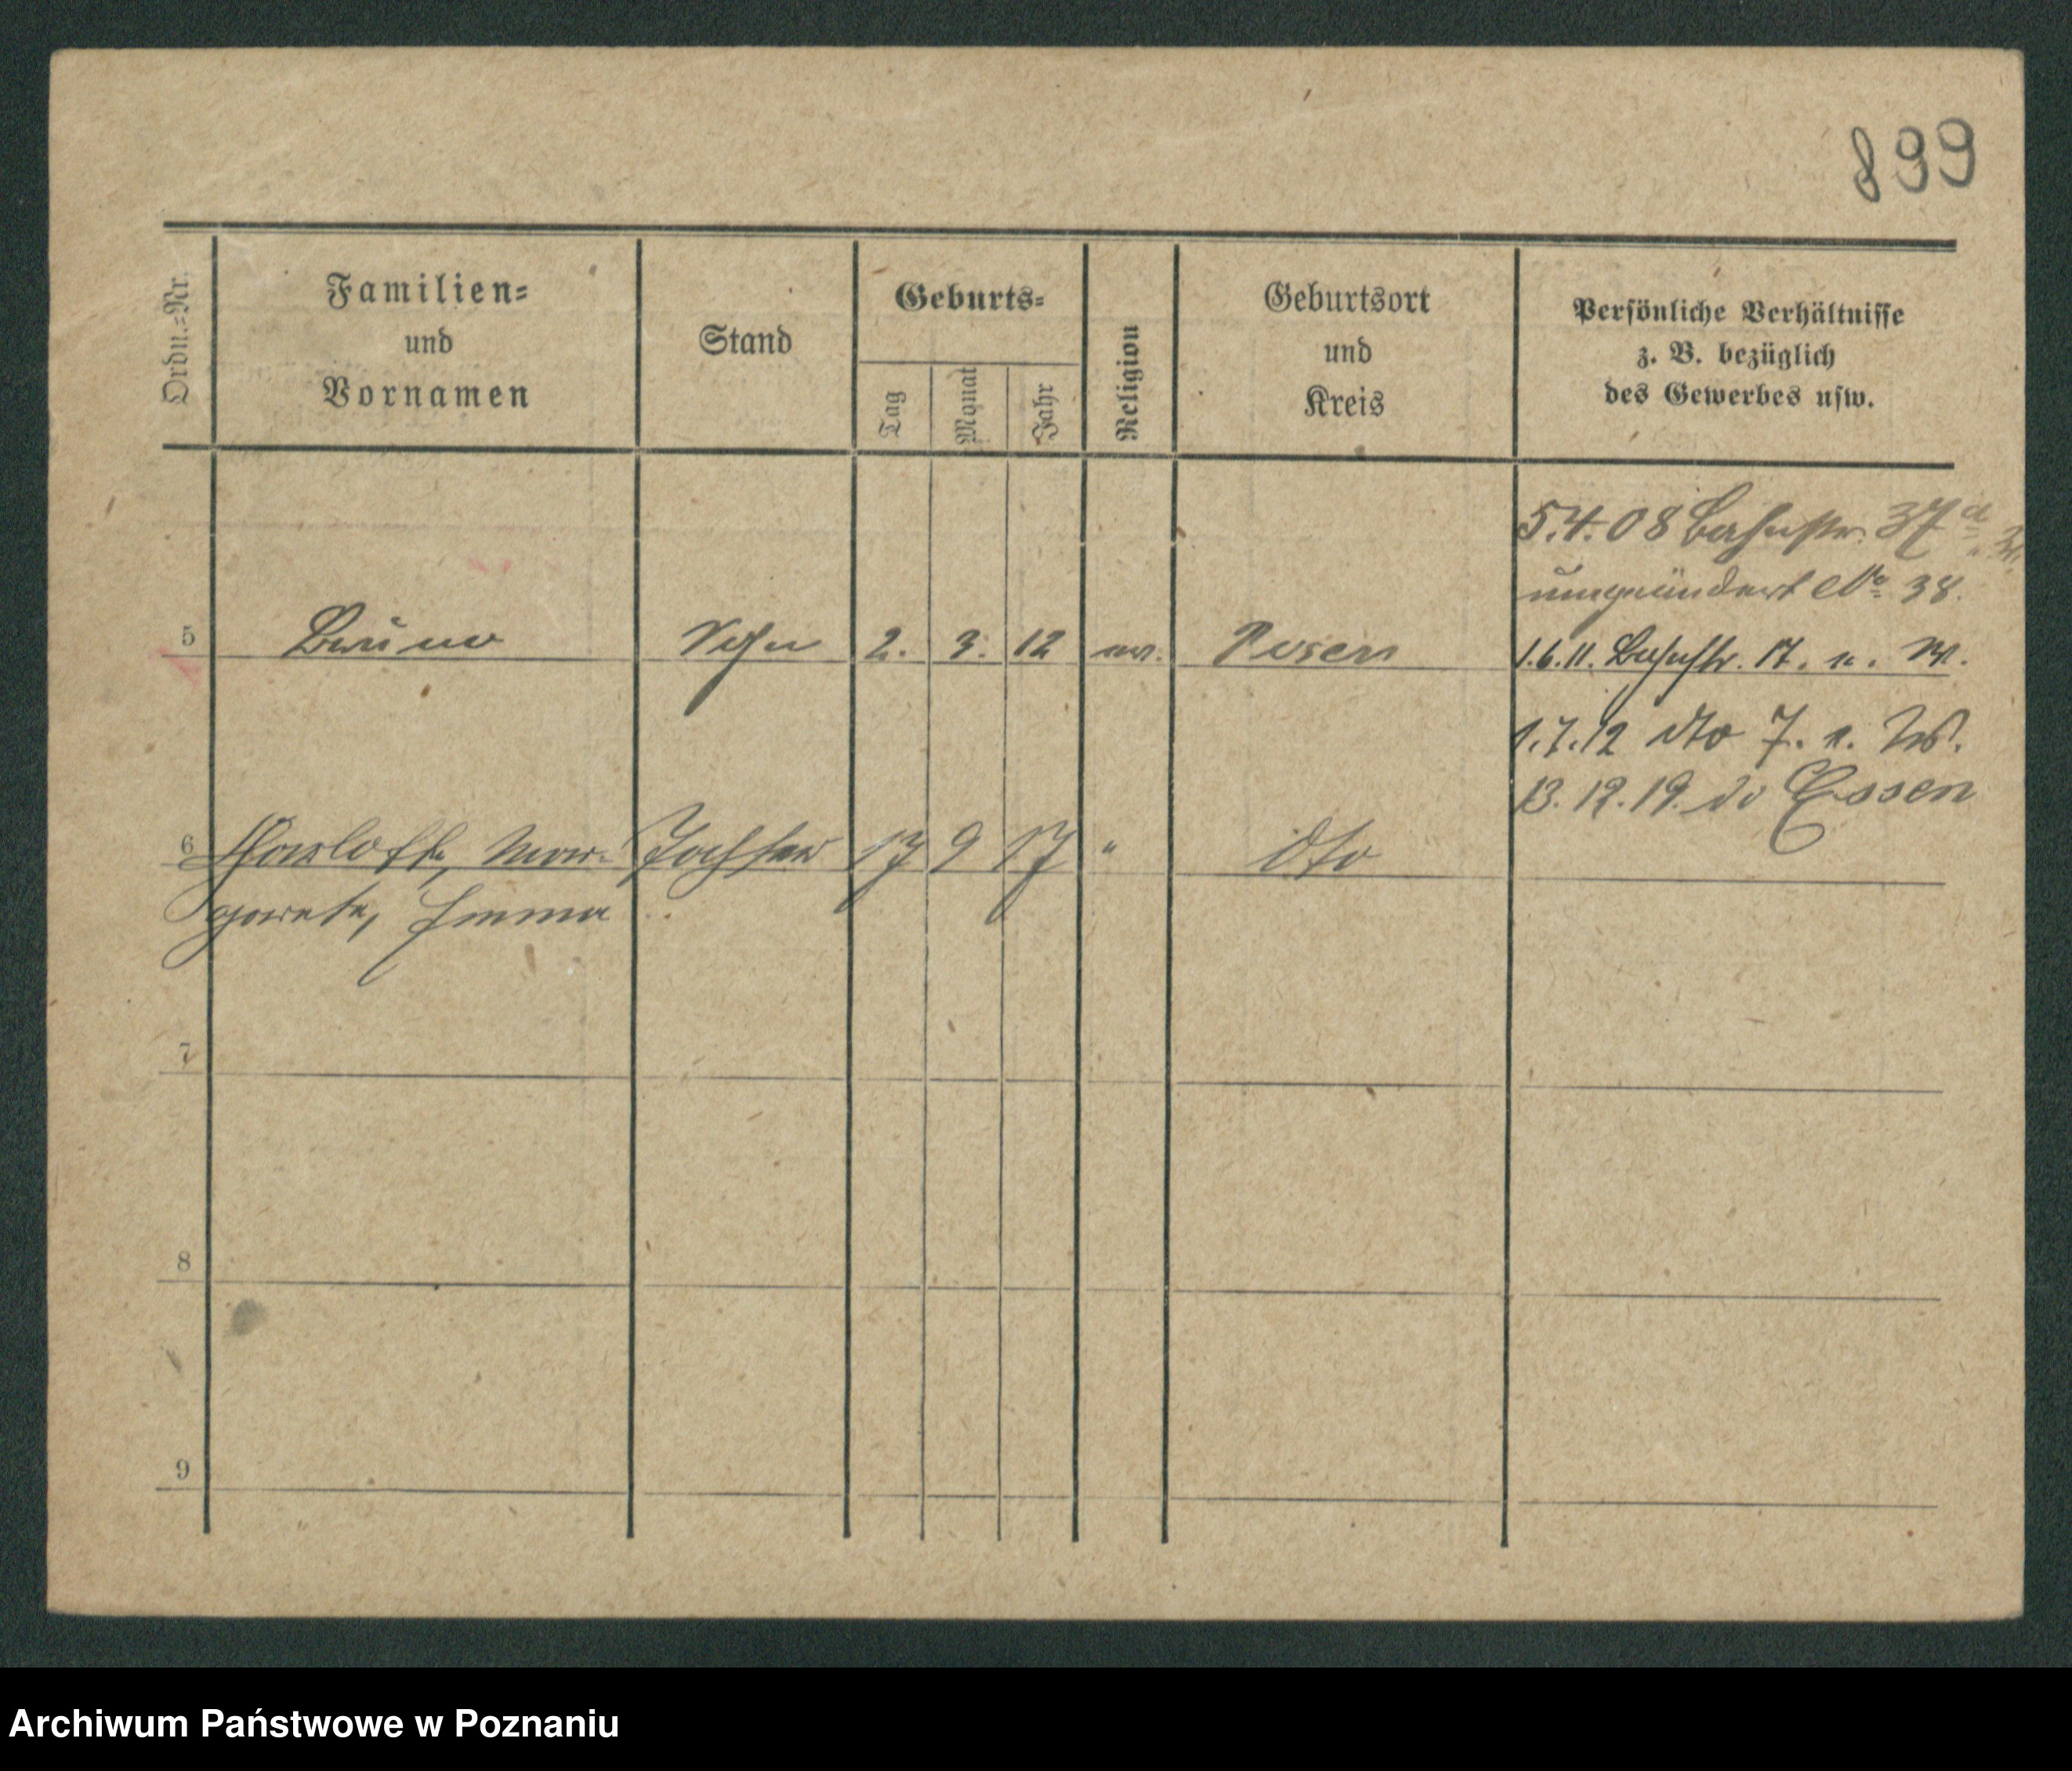 899
Ordn.=Nr.
Familien=
und
Vornamen
Stand
Geburts=
Tag
Monat
Jahr
Religion
Geburtsort
und
Kreis
Persönliche Verhältnisse
z. B. bezüglich
des Gewerbes usw.
5.4.08 Bahnstr. 37 a
No 38.
5 Bruno Sohn 2. 3. 12 ev. Posen 1.6.11. Bahnstr. 17. n. W.
1.7.12 dto 7. n. W.
13.12.19. Essen
6 Charlotte, Mar- Tochter 17 9 17 " dto
garete, Emma
7
8
9
Archiwum Państwowe w Poznaniu